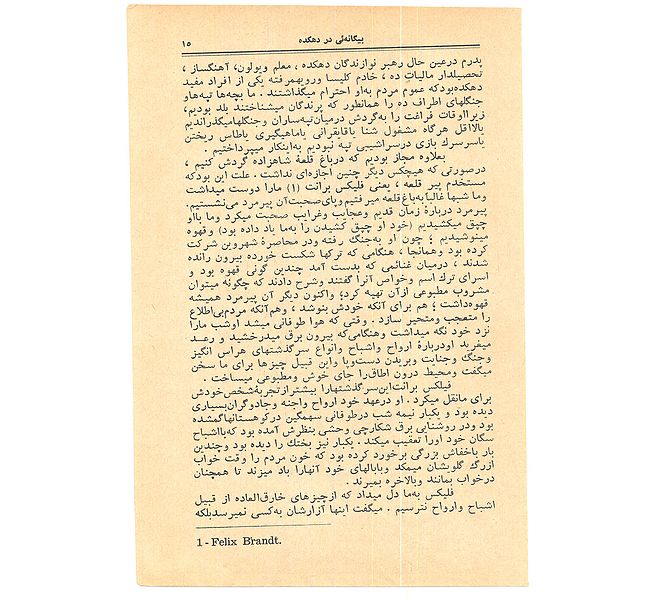 بیگانه‌ئی در دهکده
۱۵
پدرم درعین حال رهبر نوازندگان دهکده ، معلم ویولون، آهنگساز ،
تحصیلدار مالیات ده ، خادم کلیسا ورویهمرفته یکی از افراد مفید
دهکده‌بودکه عموم مردم به‌او احترام میگذاشتند . ما بچه‌ها تپه‌هاو
جنگلهای اطراف ده را همانطور که پرندگان میشناختند بلد بودیم،
زیرااوقات فراغت را به‌گردش درمیان‌تپه‌ساران وجنگلهامیگذراندیم
بالااقل هرگاه مشغول شنا یاقایقرانی یاماهیگیری یاطاس ریختن
یاسرسرك بازی درسراشیبی تپه نبودیم به‌اینکار میپرداختیم .
بعلاوه مجاز بودیم که درباغ قلعهٔ شاهزاده گردش کنیم ،
درصورتی که هیچکس دیگر چنین اجازه‌ای نداشت . علت این بودکه
مستخدم پیر قلعه ، یعنی فلیکس برانت (۱) مارا دوست میداشت
وما شبها غالباً به‌باغ قلعه میرفتیم وپای‌صحبت‌آن پیرمرد می‌نشستیم.
پیرمرد دربارهٔ زمان قدیم وعجایب وغرایب صحبت میکرد وما بااو
چپق میکشیدیم (خود او چپق کشیدن را به‌ما یاد داده بود) وقهوه
مینوشیدیم ؛ چون او به‌جنگ رفته ودر محاصرهٔ شهروین شرکت
کرده بود وهمانجا ، هنگامی که ترکها شکست خورده بیرون رانده
شدند ، درمیان غنائمی که بدست آمد چندین گونی قهوه بود و
اسرای ترك اسم وخواص آنرا گفتند وشرح دادند که چگونه میتوان
مشروب مطبوعی ازآن تهیه کرد؛ واکنون دیگر آن پیرمرد همیشه
قهوه‌داشت ، هم برای آنکه خودش بنوشد ، وهم‌آنکه مردم‌بی‌اطلاع
را متعجب ومتحیر سازد . وقتی که هوا طوفانی میشد اوشب مارا
نزد خود نگه میداشت وهنگامی‌که بیرون برق میدرخشید و رعد
میغرید اودربارهٔ ارواح واشباح وانواع سرگذشتهای هراس انگیز
وجنگ وجنایت وبریدن دست‌وپا واین قبیل چیزها برای ما سخن
میگفت ومحیط درون اطاق‌را جای خوش ومطبوعی میساخت .
فیلکس برانت‌این‌سرگذشتهارا بیشترازتجربهٔ‌شخص‌خودش
برای مانقل میکرد . او درعهد خود ارواح واجنه وجادوگران‌بسیاری
دیده بود و یکبار نیمه شب درطوفانی سهمگین درکوهستانهاگمشده
بود ودر روشنایی برق شکارچی وحشی بنظرش آمده بود که‌بااشباح
سگان خود اورا تعقیب میکند . یکبار نیز بختك را دیده بود وچندین
بار باخفاش بزرگی برخورد کرده بود که خون مردم را وقت خواب
ازرگ گلویشان میمکد وبابالهای خود آنهارا باد میزند تا همچنان
درخواب بمانند وبالاخره بمیرند .
فلیکس به‌ما دل میداد که ازچیزهای خارق‌العاده از قبیل
اشباح وارواح نترسیم . میگفت اینها آزارشان به‌کسی نمیرسدبلکه
1 - Felix Brandt.